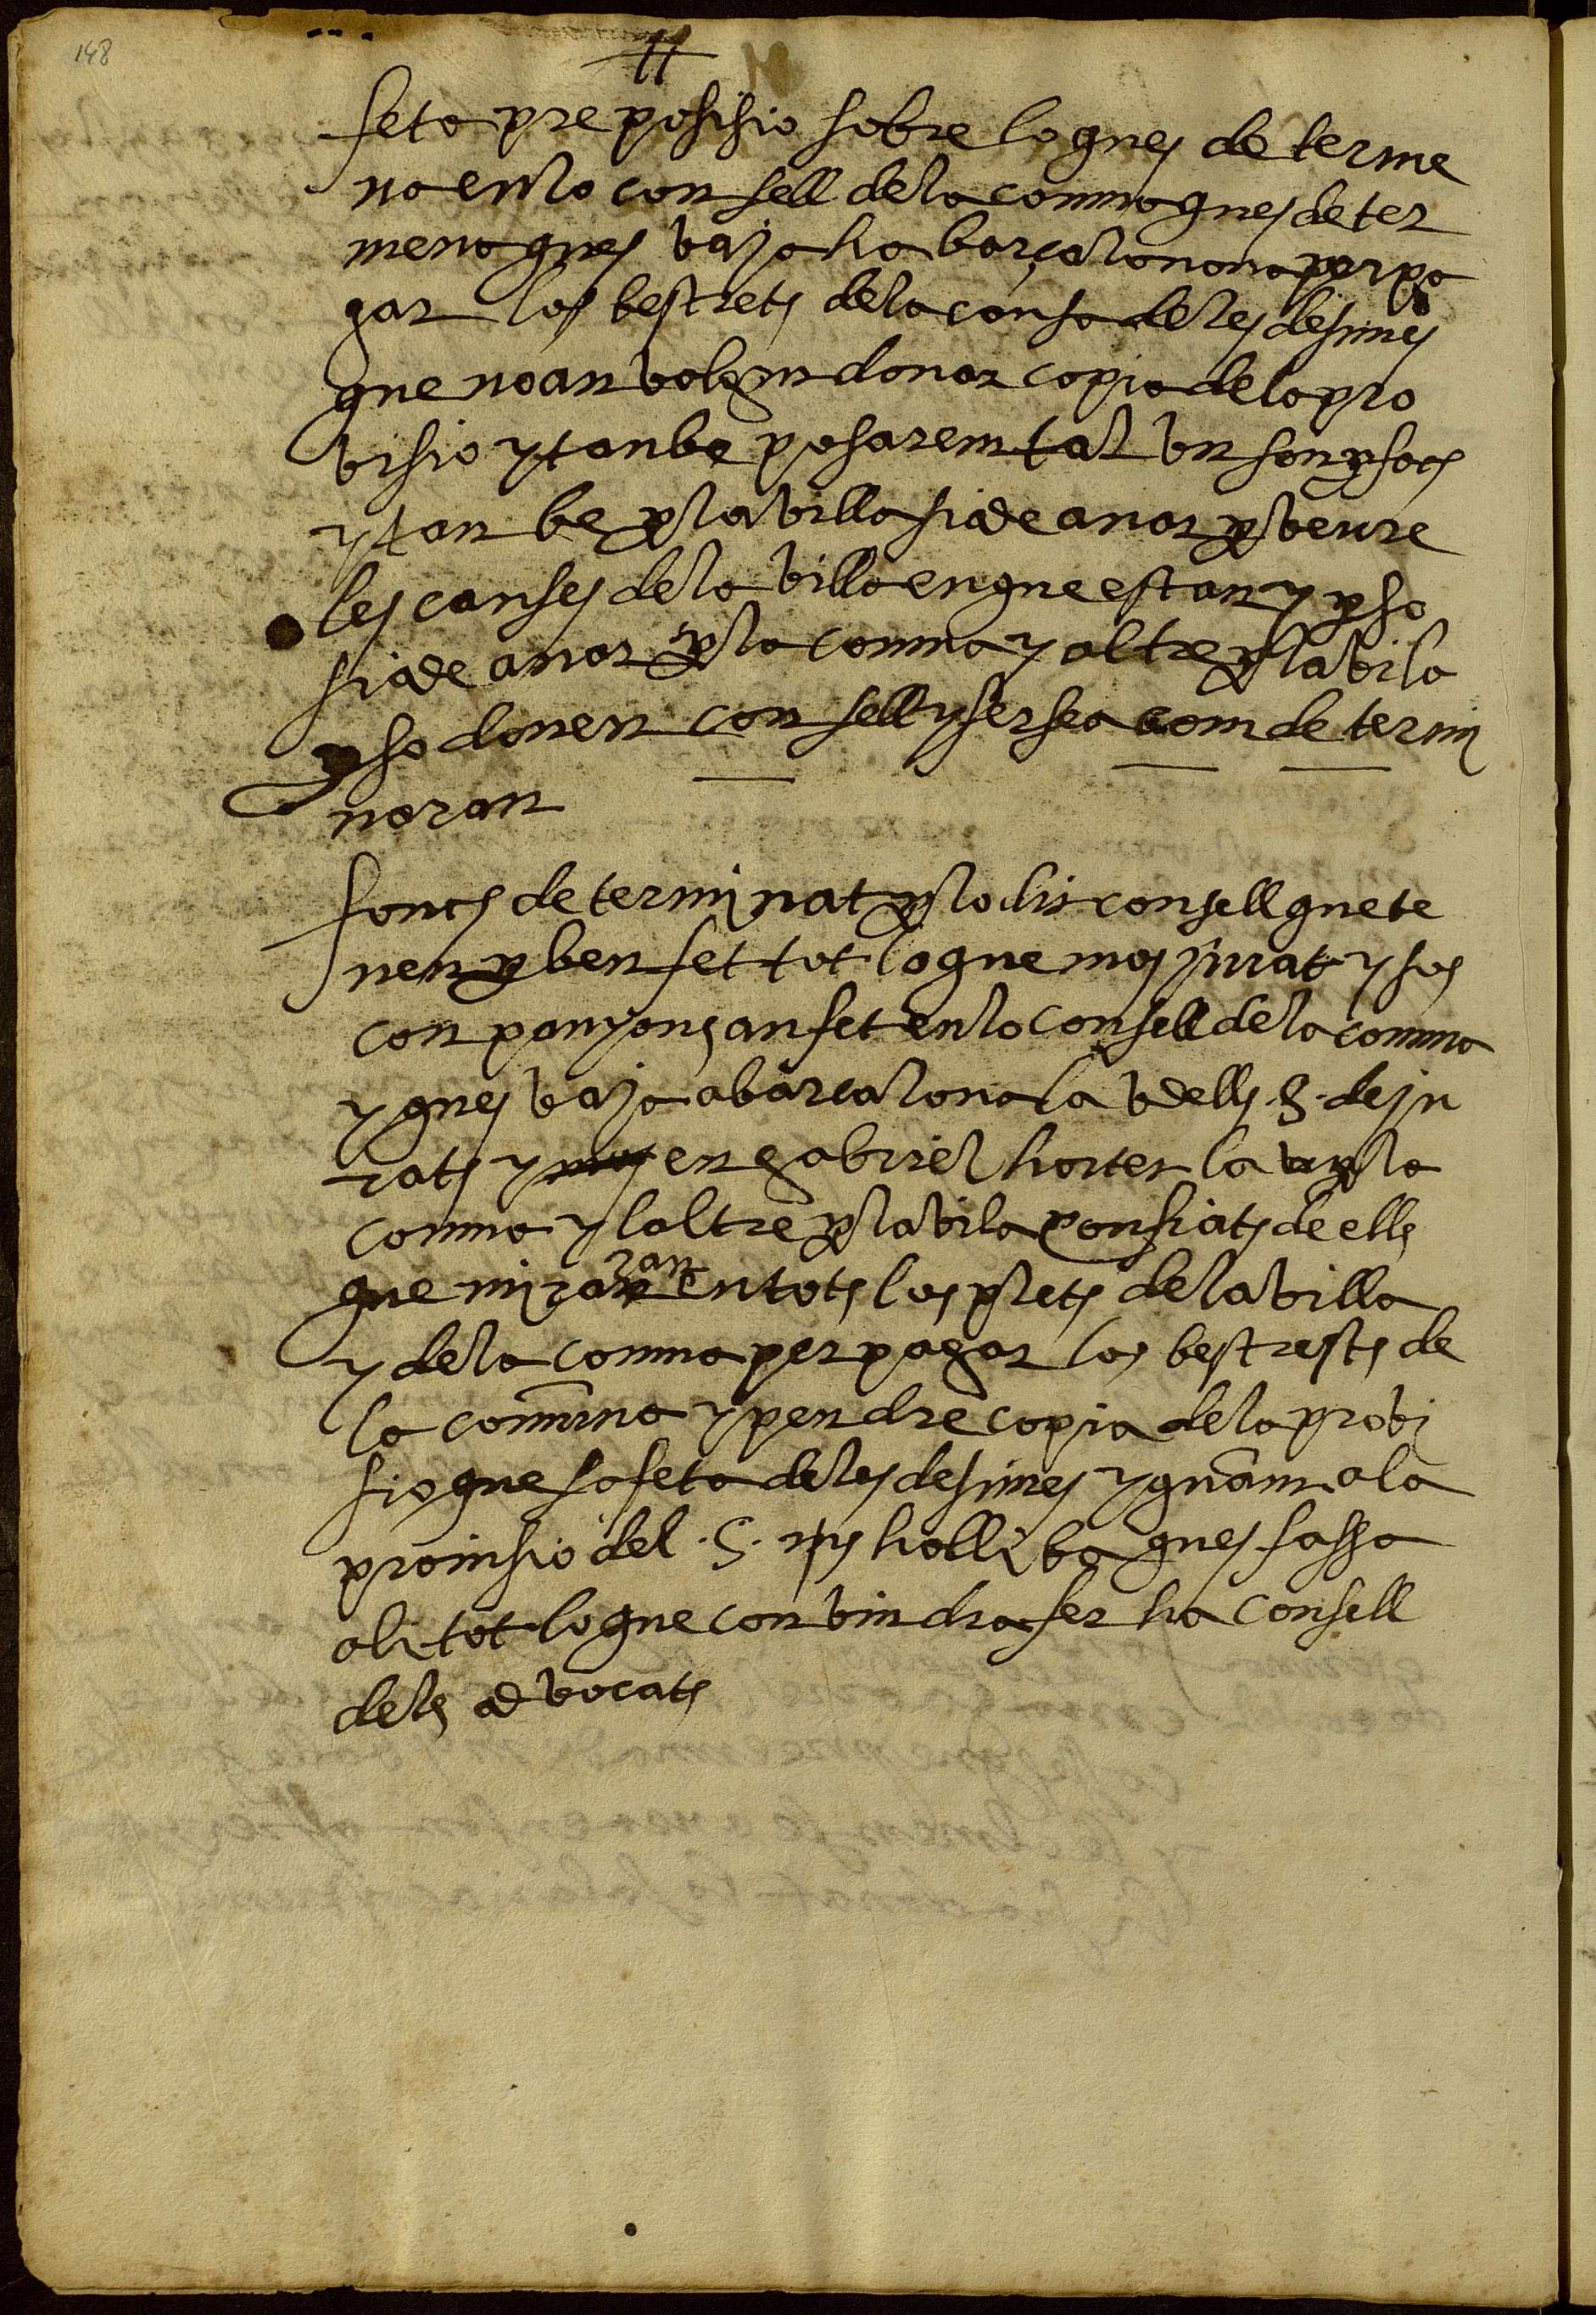 148
feta preposisio sobre lo ques determe
na en lo consell de la comuna ques deter
mena ques vaja ha barçalonona per pa
gar los bestrets de la causa de les desimes
que no an volgut donar copia de la pro
visio y tanbe posarem tal
y tan be p la villa si a de anar p veure
les causes de la villa en que estan y p so
si a de anar p la comuna y altre p la vila
p so donen consell y fer sea com determi
naran
fonch determinat p lo dit consell que te
nen p ben fet tot lo que mos jurat y sos
conpanyons an fet en lo consell de la comuna
y ques vaja a barcalona la u dells .S. de ju
rats y en gabriel horter la un p la
comuna y laltre p la vila confiats de ells
que miraran en tots los plets de la villa
y de la comuna per pagar los bestrests de
la comuna y pendre copia de la provi
sio que sa feta de les desimes y quant a la
proinsio del .S. holliba ques fassa
ali tot lo que convindra fer ha consell
dels advocats